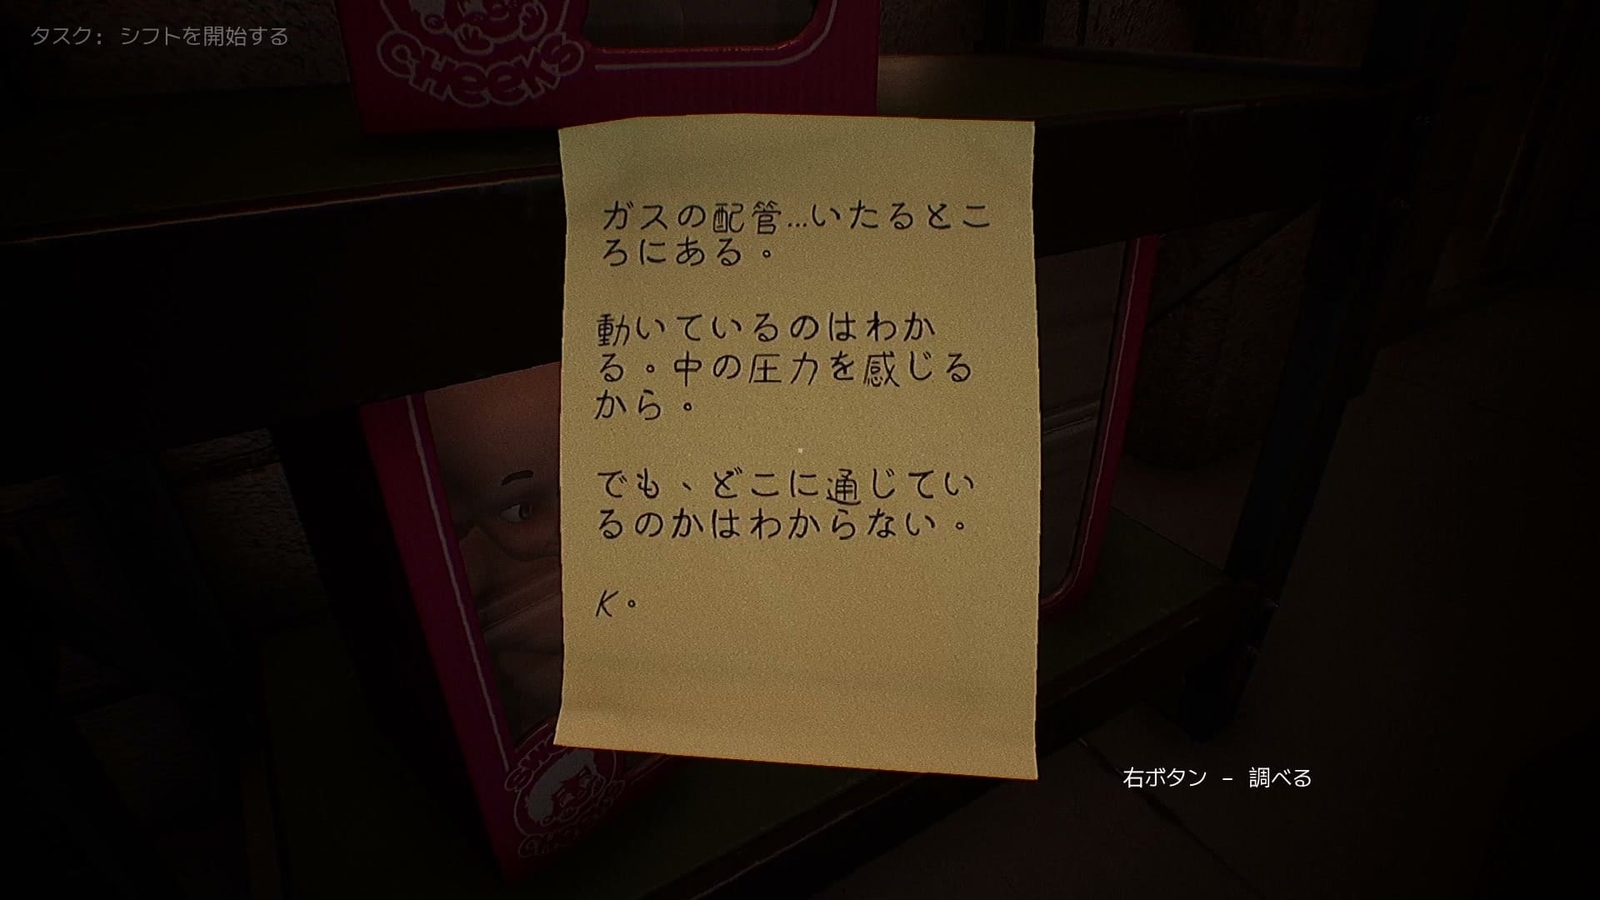 タスク: シフトを開始する
CHEEKS
ガスの配管...いたるとこ
ろにある。
動いているのはわか
る。中の圧力を感じる
から。
でも、どこに通じてい
るのかはわからない。
K。
右ボタン - 調べる